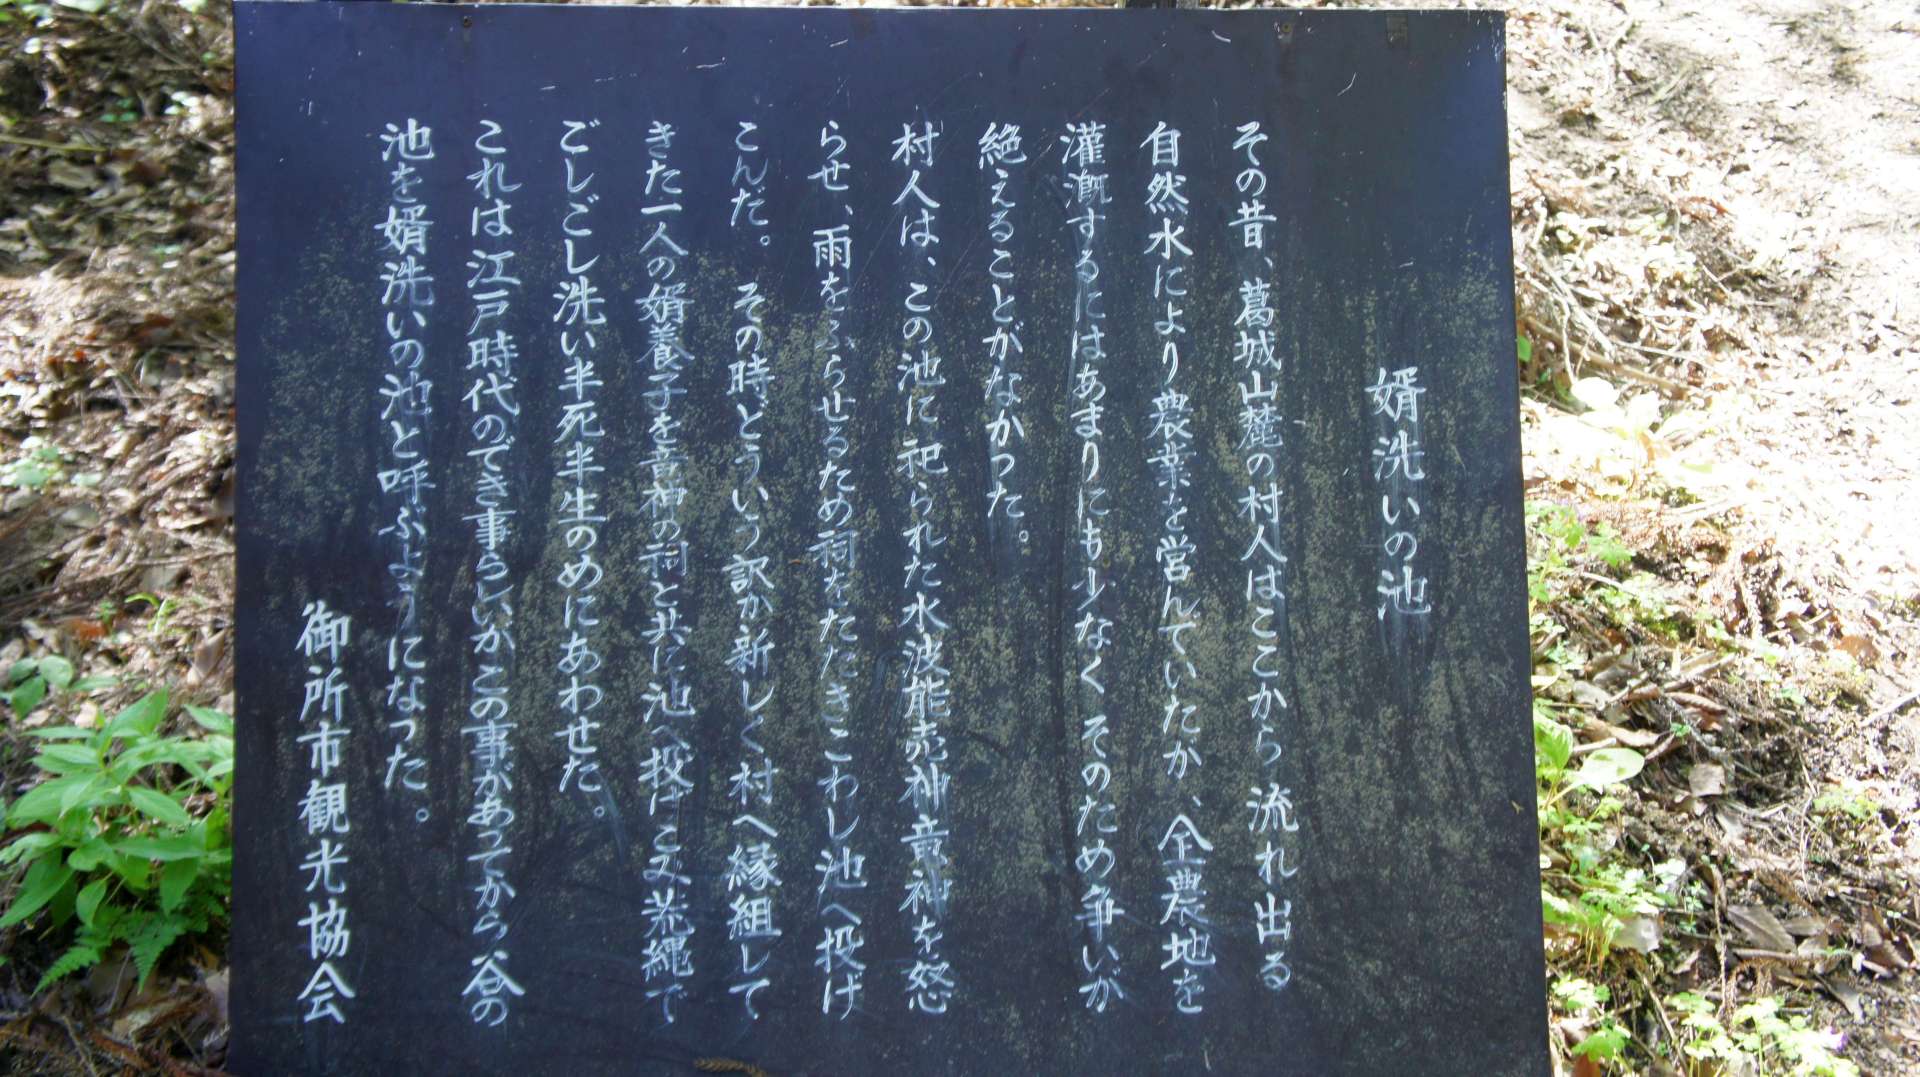 婿洗いの池
その昔、葛城山麓の村人はここから流れ出る
自然水により農業を営んていたか、全農地を
灌漑するにはあまりにも少なくそのため争いが
絶えることがなかった。
村人は、この池に祀られた水波能売神竜神を怒
らせ、雨をふらせるため祠をたたきこわし池へ投げ
こんだ。その時とういう訳か新しく村へ縁組して
きた一人の婿養子を竜神の祠と共に池へ投げこみ荒縄で
ごしごし洗い半死半生のめにあわせた。
これは江戸時代のでき事らしいがこの事があってから谷の
池を婿洗いの池と呼ぶようになった。
御所市観光協会